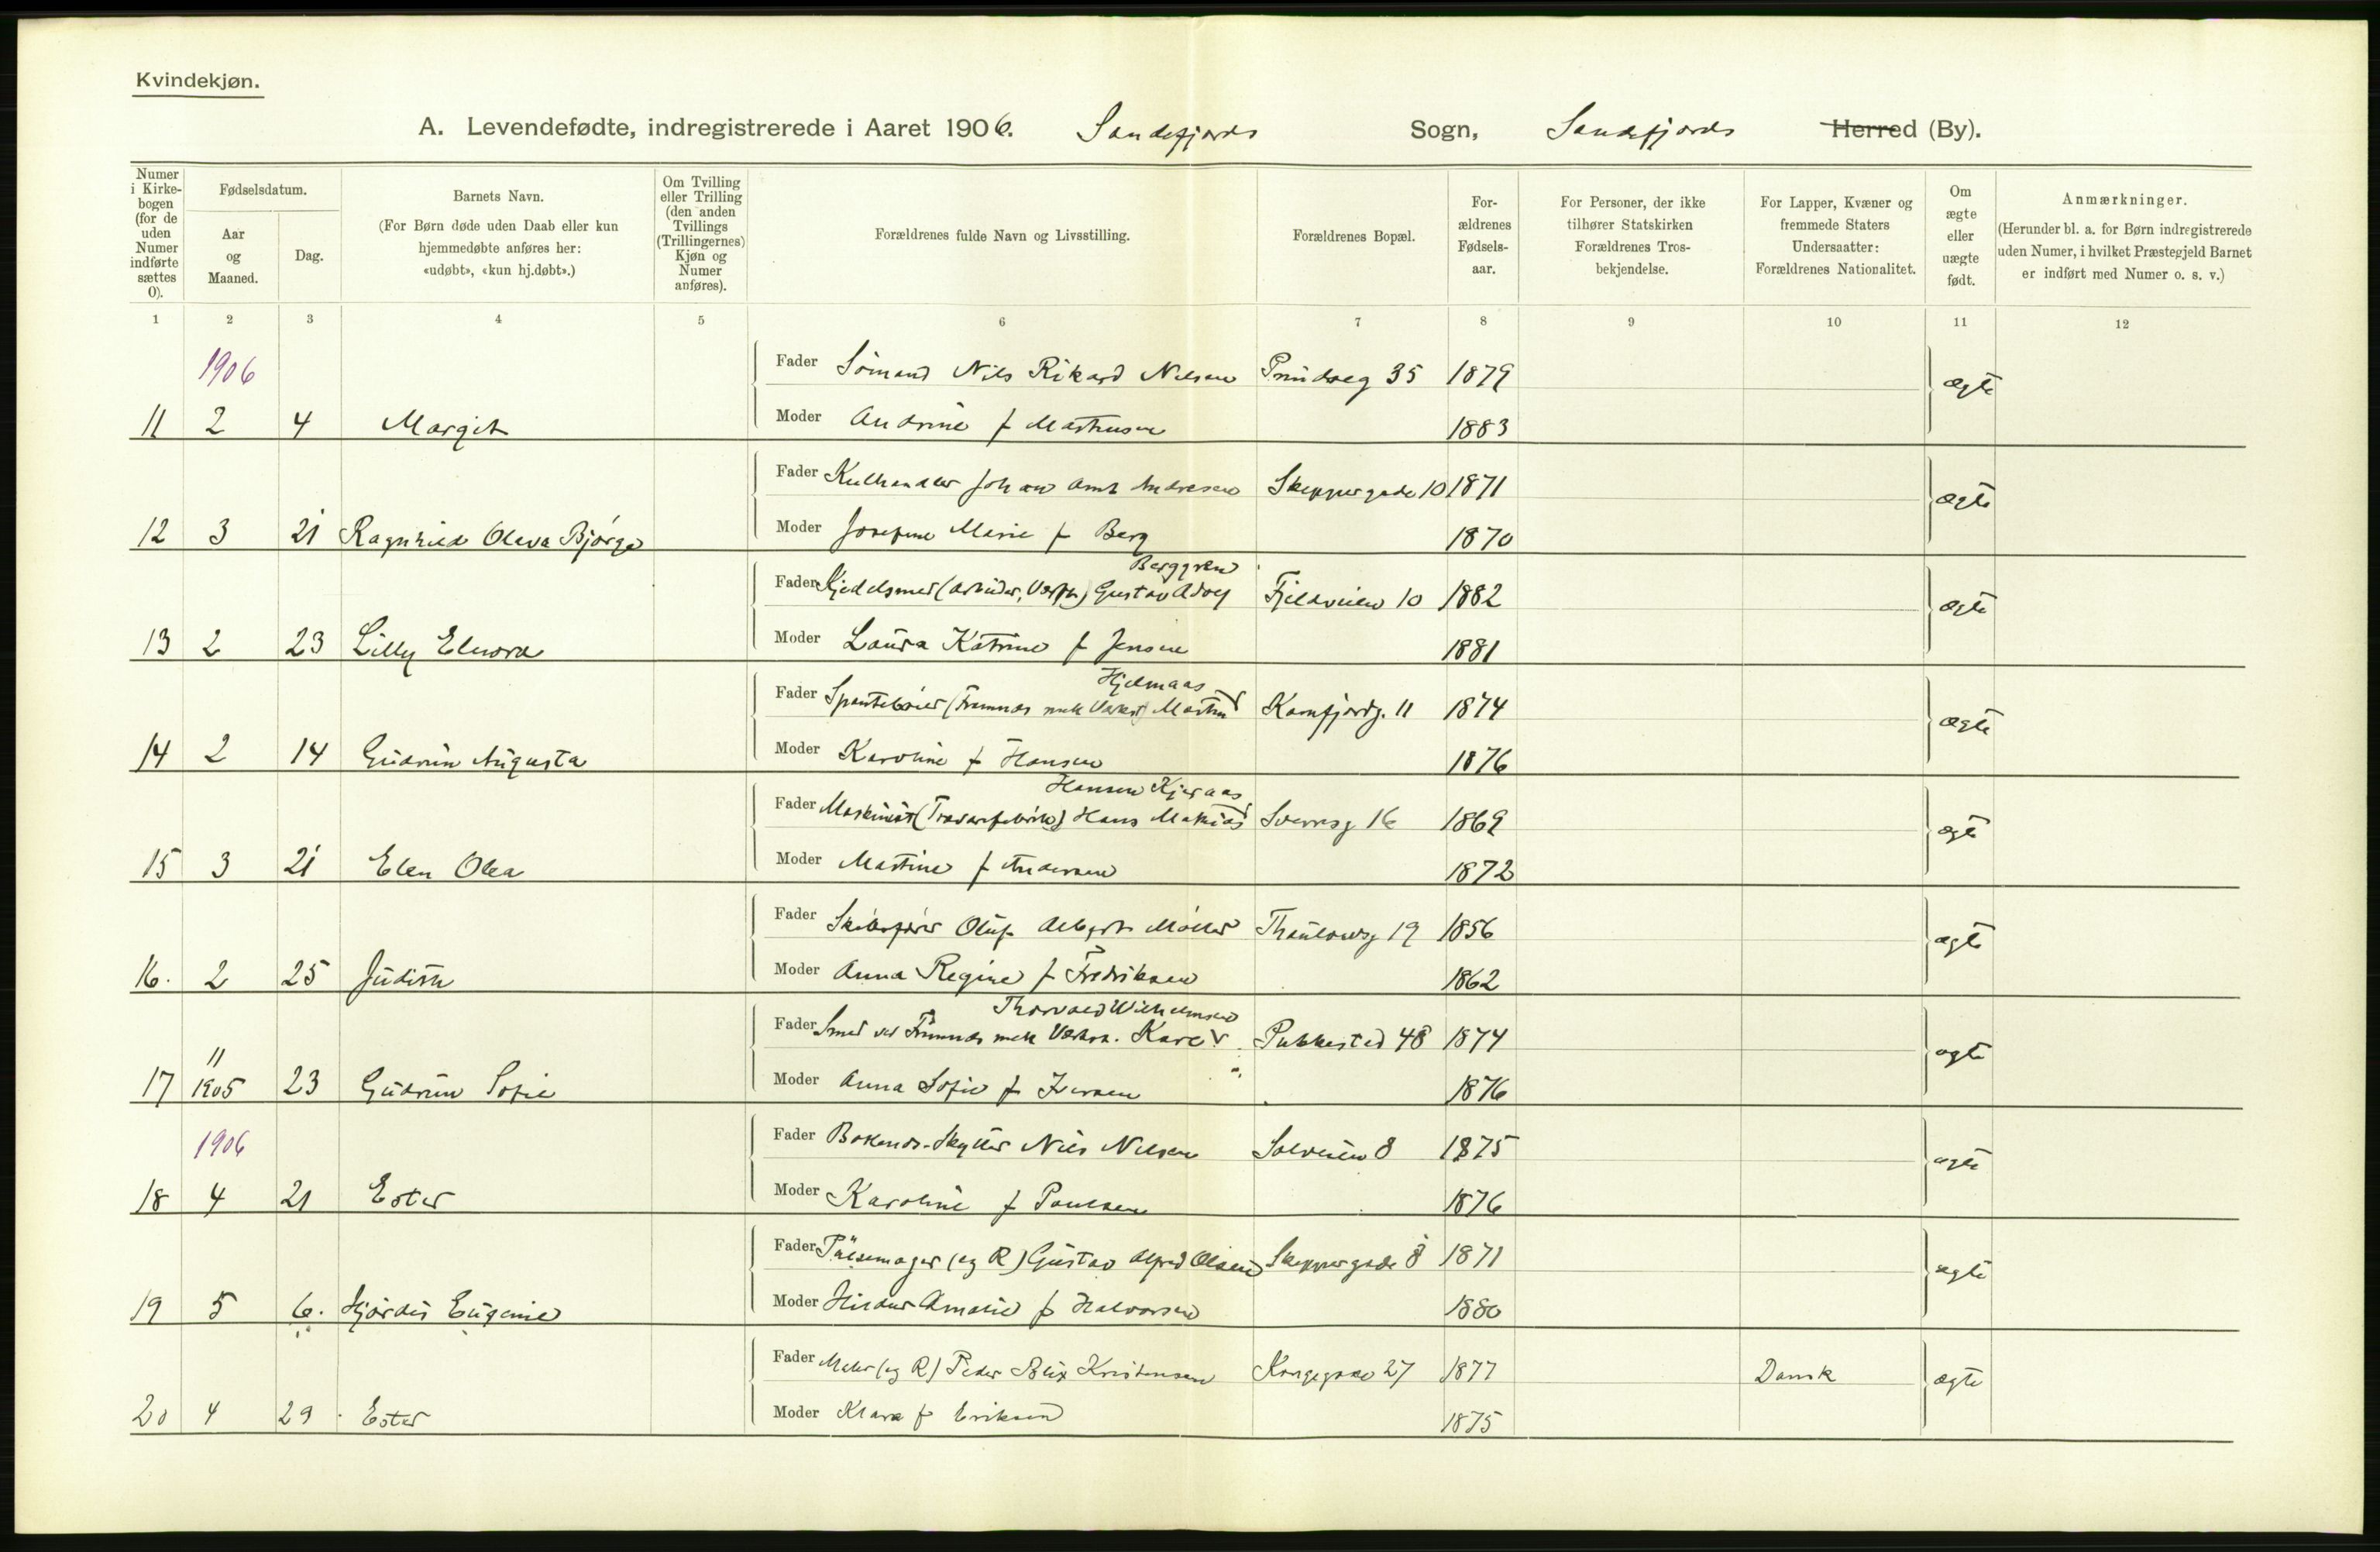 Kvindekjøn.
A. Levendefødte, indregistrerede i Aaret 1906. Sandefjords Sogn, Sandefjords Herred (By).
Numer i Kirkebogen (for de uden Numer indførte sættes 0).
Fødselsdatum.
Aar og Maaned.
Dag.
Barnets Navn.
(For Børn døde uden Daab eller kun hjemmedøbte anføres her: «udøbt», «kun hj.døbt».)
Om Tvilling eller Trilling (den anden Tvillings (Trillingernes) Kjøn og Numer anføres).
Forældrenes fulde Navn og Livsstilling.
Forældrenes Bopæl.
Forældrenes Fødselsaar.
For Personer, der ikke tilhører Statskirken Forældrenes Trosbekjendelse.
For Lapper, Kvæner og fremmede Staters Undersaatter: Forældrenes Nationalitet.
Om ægte eller uægte født.
Anmærkninger.
(Herunder bl. a. for Børn indregistrerede uden Numer, i hvilket Præstegjeld Barnet er indført med Numer o. s. v.)
1 2 3 4 5 6 7 8 9 10 11 12
1906
Fader Sömand Nils Rikard Nilsen 35 1879 ægte
11 2 4 Margit Moder Andrine f Mathisen 1883
Fader Kulhandler Johan Amt Andresen Skippergade 10 1871 ægte
12 3 21 Ragnhild Oleva Bjørge Moder Josefine Marie f Berg 1870
Berggren
Fader Kjedelsmed (arbeider, Verft) Gustav Adolf Fjeldveien 10 1882 ægte
13 2 23 Lilly Elnora Moder Laura Katrine f Jensen 1881
Hjelmaas
Fader (Framnæs mek Værkst) Martin Kamfjordg. 11 1874 ægte
14 2 14 Gudrun Augusta Moder Karoline f Hansen 1876
Hansen Kjæraas
Fader Maskinist (Trævarefabrik) Hans Mathias Sverresg 16 1869 ægte
15 3 21 Elen Olea Moder Martine f Andersen 1872
Fader Skibsfører Oluf Albert Möller Thaulowsg 19 1856 ægte
16. 2 25 Judith Moder Anna Regine f Fredriksen 1862
Thorvald Wilhelmsen
Fader Smed ved Framnæs mek Værkst. Karl Pukkested 48 1874 ægte
17 11 1905 23 Gudrun Sofie Moder Anna Sofie f Iversen 1876
1906
Fader Nils Nilsen Solveien 8 1875 ægte
18 4 21 Ester Moder Karoline f Paulsen 1876
Fader Pølsemager (eg R) Gustav Alfred Olsen Skippergade 8 1871 ægte
19 5 6. Hjørdis Eugenie Moder Hildur Amalie f Halvorsen 1880
Fader Maler (eg R) Peder Blix Kristensen Kongegade 27 1877 Dansk ægte
20 4 29 Ester Moder Klara f Eriksen 1875